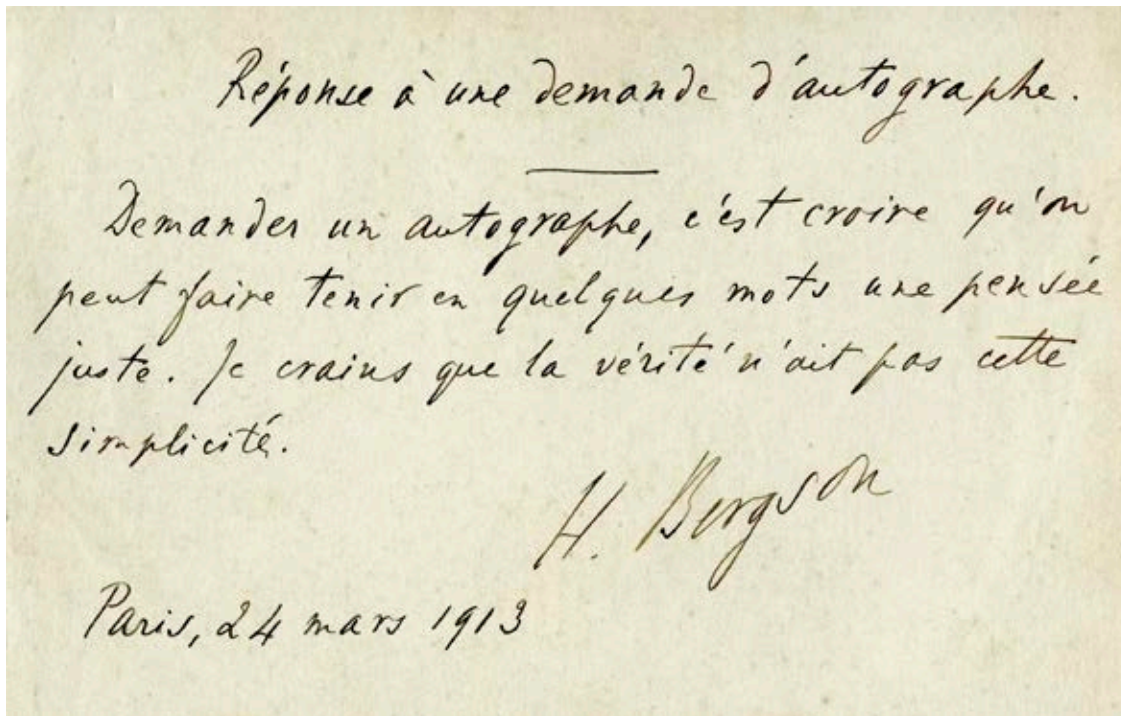 Réponse à une demande d'autographe.
Demander un autographe, c'est croire qu'on
peut faire tenir en quelques mots une pensée
juste. Je crains que la vérité n'ait pas cette
simplicité.
H. Bergson
Paris, 24 mars 1913